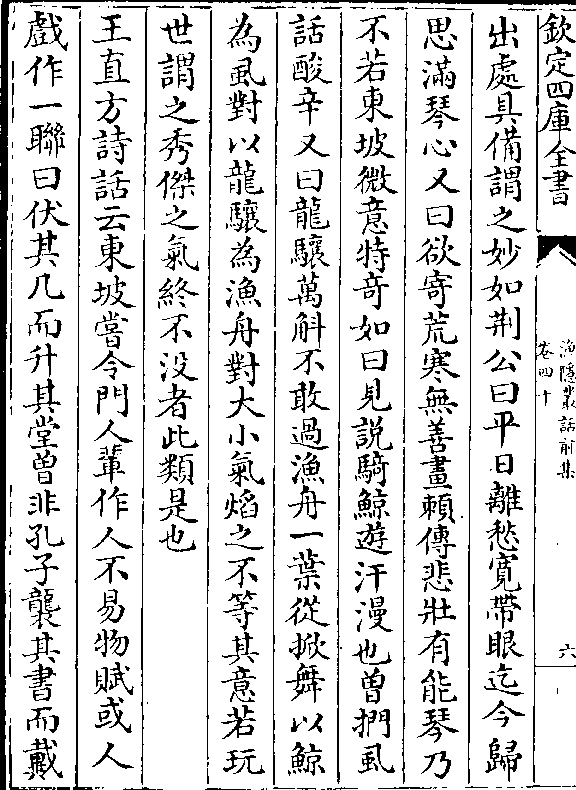 欽定四庫全書
漁隱叢話前集
卷四十
六
出處具備謂之妙如荆公曰平日離愁寛帶眼迄今歸
思滿琴心又曰欲寄荒寒無善畫頼傳悲壯有能琴乃
不若東坡微意特竒如曰見説騎鯨遊汗漫也曽捫虱
話酸辛又曰龍驤萬斛不敢過漁舟一葉從掀舞以鯨
為虱對以龍驤為漁舟對大小氣焰之不等其意若玩
世謂之秀傑之氣終不没者此類是也
王直方詩話云東坡嘗令門人輩作人不易物賦或人
戲作一聯曰伏其几而升其堂曽非孔子襲其書而戴